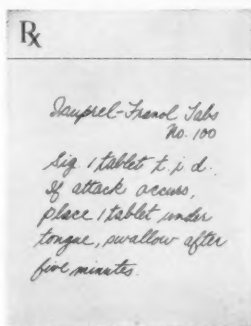 Rx
Isuprel-Franol Tabs
No. 100
Sig. 1 tablet t. i. d.
If attack occurs,
place 1 tablet under
tongue, swallow after
five minutes.